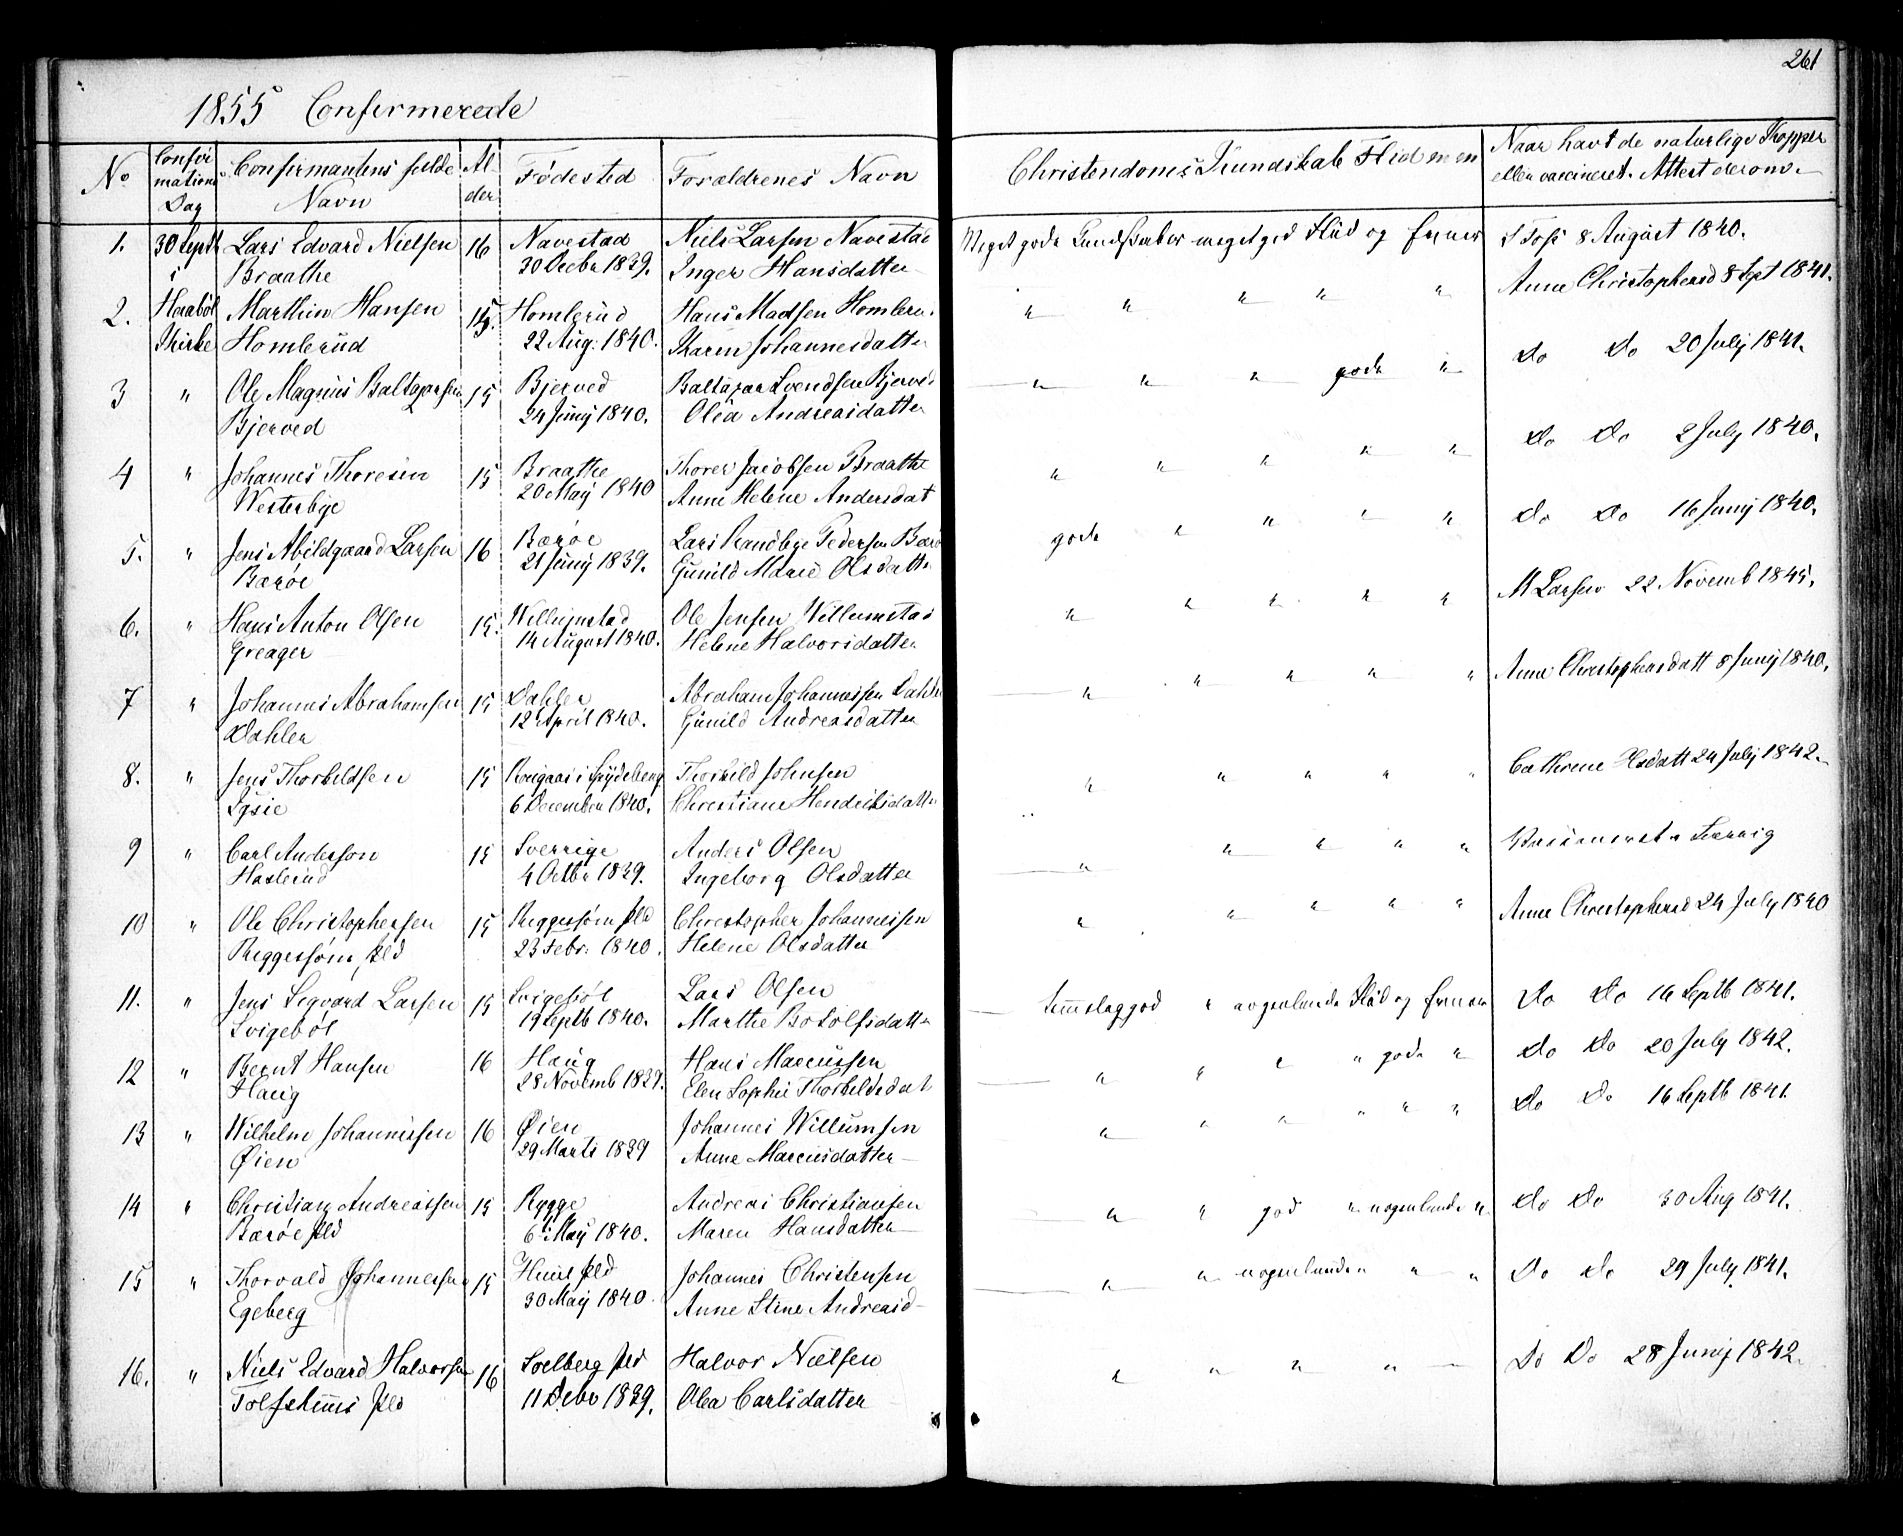 261
1855 Confirmerede
No Confirmations Dag Confirmantens fulde Navn Alder Fødested Forældrenes Navn Christendoms Kundskab Flid Naar havt de naturlige Kopper eller vaccineret. Attest derom.
1. 30 Septb Lars Edvard Nielsen 16 Navestad Niels Larsen Navestad Meget gode Kundskaber meget god Fliid og 8 August 1840.
i Braathe 30 Decbr 1839. Inger Hansdatter
2. Haabøl Marthin Hansen 15. Homlerud Hans Madsen Homleru " " " " " Anne Christophersd 8 Sept 1841.
Kirke Homlerud 22 Aug: 1840. Karen Johannesdatter
3 " Ole Magnus Baltazarsen 15 Bjerved Baltazar Svendsen Bjerved " " " gode " Do Do 20 July 1841.
Bjerved 24 Juny 1840. Olea Andreasdatter
4 " Johannes Thoresen 15 Braathe Thorer Jacobsen Braathe " " " " " Do Do 2 July 1840.
Westerbye 20 May 1840 Anne Helene Andersdat
5. " Jens Abildgaard Larsen 16 Bærøe Lars Randbye Pedersen Bærø gode " " " " Do Do 16 Juny 1840.
Bærøe 21 Juny 1839. Gunild Marie Olsdatter
6. " Hans Anton Olsen 15. Willumstad Ole Jensen Willumstad " " " " " M Larsen 22 Novemb 1845.
Greager 14 August 1840. Helene Halvorsdatter
7 " Johannes Abrahamsen 15 Dahler Abraham Johannessen Dahle " " " " " Anne Christophersdatt 8 Juny 1840.
Dahler 12 April 1840. Gunild Andreasdatter
8. " Jens Thorkildsen 15 i Spydeberg Thorkild Johnsen " " " " " Cathrine Olsdatt 24 July 1842.
Lysie 6 December 1840. Christiane Hendriksdatter
9 " Carl Anderson 15 Sverrige Anders Olsen " " " " "
Haslerud 4 Octbr 1839. Ingeborg Olsdatter
10 " Ole Christophersen 15 Ryggesføm Pld Christopher Johannessen " " " " " Anne Christophersd 24 July 1840
Ryggesføm Pld 23 Febr: 1840. Helene Olsdatter
11. " Jens Segvard Larsen 15 Svigebøl Lars Olsen temmelig god " nogenlunde Fliid og Do Do 16 Septb 1841.
Svigebøl 19 Septb 1840. Marthe Botolfsdatter
12 " Bernt Hansen 16 Haug Hans Marcussen " " " " gode " Do Do 20 July 1842.
Haug 28 Novemb 1839. Elen Sophie Thorkildsdat
13 " Wilhelm Johannessen 16 Øien Johannes Willumsen " " " " " " Do Do 16 Septb 1841.
Øien 29 Marts 1839 Anne Marcusdatter
14 " Christian Andreassen 15 Rygge Andreas Christiansen " " god " nogenlunde " Do Do 30 Aug 1841.
Bærøe Pld 6 May 1840. Maren Hansdatter
15 " Thorvald Johannessen 15 Huus Pld Johannes Christensen " " nogenlunde " " Do Do 29 July 1841.
Egeberg 30 May 1840. Anne Stine Andreasd
16. " Niels Edvard Halvorsen 16 Soelberg Pld Halvor Nielsen " " " " Do Do 28 Juny 1842.
Pld 11 Debr 1839. Olea Carlsdatter